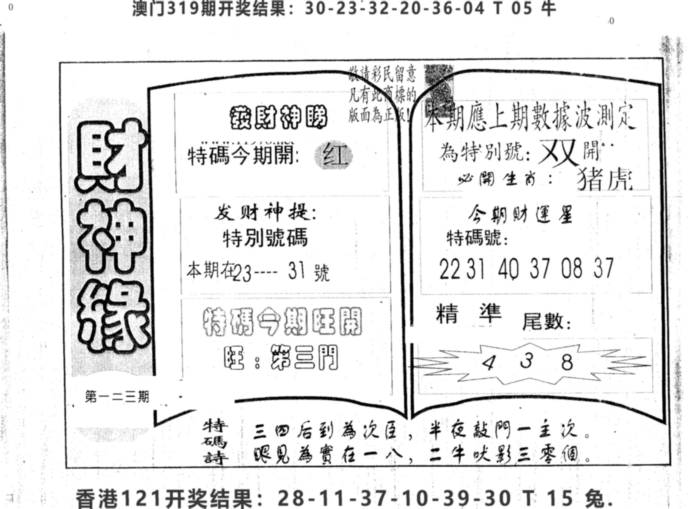 澳门319期开奖结果：30-23-32-20-36-04 T 05 牛
敬請彩民留意
凡有此商標的
版面為正版!
財神緣
第一二三期
發財神賜
特碼今期開: 红
发财神提:
特別號碼
本期在23----31號
特碼今期旺開
旺:第三門
本期應上期數據波測定
為特別號: 双 開
必開生肖: 猪虎
今期財運星
特碼號:
22 31 40 37 08 37
精準 尾數:
4 3 8
特碼詩
三四后到為次臣，半夜敲門一主次。
眼見為實在一八，二牛吠影三零個。
香港121开奖结果：28-11-37-10-39-30 T 15 兔.